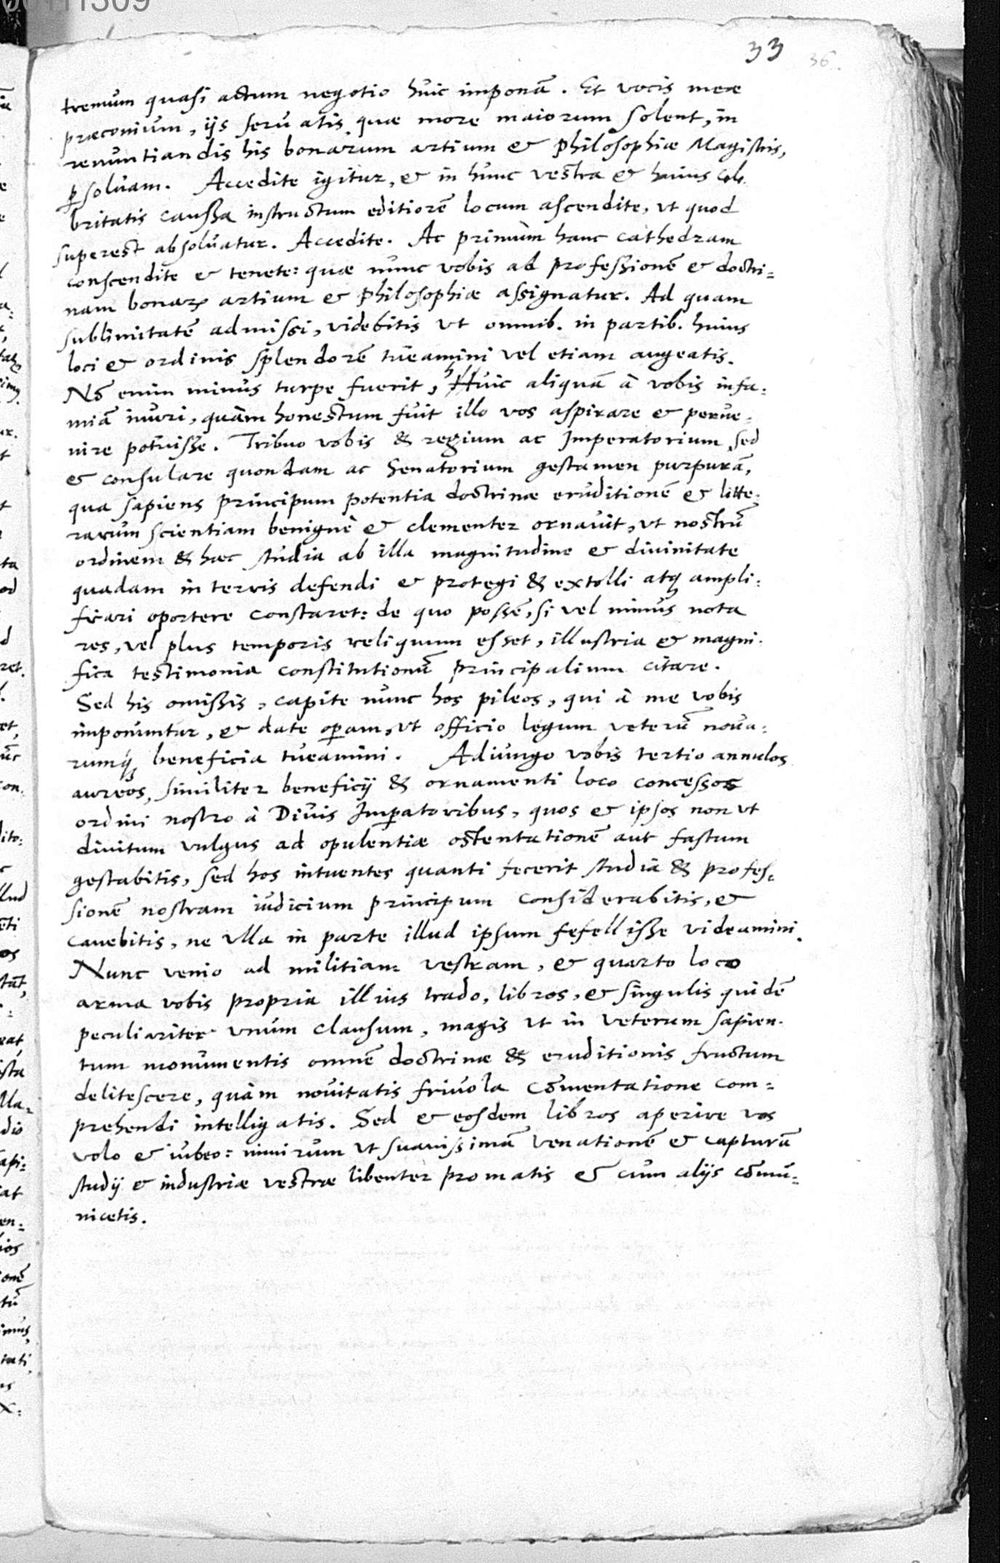 33 36.
tremum quasi actum negotio huic imponā. Et vocis meæ
præconium, ijs seruatis, quæ more maiorum solent, in
renuntiandis his bonarum artium & philosophiæ Magistris,
p̱soluam. Accedite igitur, & in hunc vestra & huius cele
britatis caussa instructum editiorē locum ascendite, vt quod
superest absoluatur. Accedite. Ac primùm hanc cathedram
conscendite & tenete: quæ nunc vobis ad professionē & doctri=
nam bonarꝝ artium & philosophiæ assignatur. Ad quam
sublimitatē admissi, videbitis vt omnib. in partib. huius
loci & ordinis splendorē tueamini vel etiam augeatis.
Nō enim minus turpe fuerit, huic aliquā à vobis infa=
miā inuri, quàm honestum fuit illo vos aspirare & perue=
nire potuisse. Tribuo vobis & regium ac Imperatorium, sed
& consulare quondam ac Senatorium gestamen purpurā,
qua sapiens principum potentia doctrinæ eruditionē & litte=
rarum scientiam benignè & clementer ornauit, vt nostrū
ordinem & hæc studia ab illa magnitudine & diuinitate
quadam in terris defendi & protegi & extolli atq; ampli=
ficari oportere constaret: de quo possē, si vel minus nota
res, vel plus temporis reliquum esset, illustria & magni=
fica testimonia constitutionū principalium citare.
Sed his omissis, capite nunc hos pileos, qui à me vobis
imponuntur, & date operam, vt officio legum veterū noua=
rumq; beneficia tueamini. Adiungo vobis tertio annulos
aureos, similiter beneficij & ornamenti loco concessos
ordini nostro à Diuis Imperatoribus, quos & ipsos non vt
diuitum vulgus ad opulentiæ ostentationē aut fastum
gestabitis, sed hos intuentes quanti fecerit studia & profes=
sionē nostram iudicium principum considerabitis, &
cauebitis, ne vlla in parte illud ipsum fefellisse videamini.
Nunc venio ad militiam vestram, & quarto loco
arma vobis propria illius trado, libros, & singulis quidē
peculiariter vnum clausum, magis vt in veterum sapien=
tum monumentis omnē doctrinæ & eruditionis fructum
delitescere, quàm nouitatis friuola cōmentatione com=
prehendi intelligatis. Sed & eosdem libros aperire vos
volo & iubeo: nimirum vt suauissimā venationē & capturā
studij & industriæ vestræ libenter promatis & cum alijs cōmu=
nicetis.